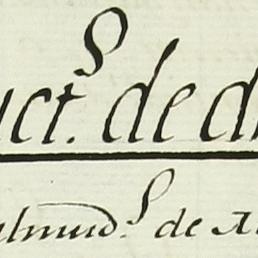 uct.ˢ de d
almud.ˢ de